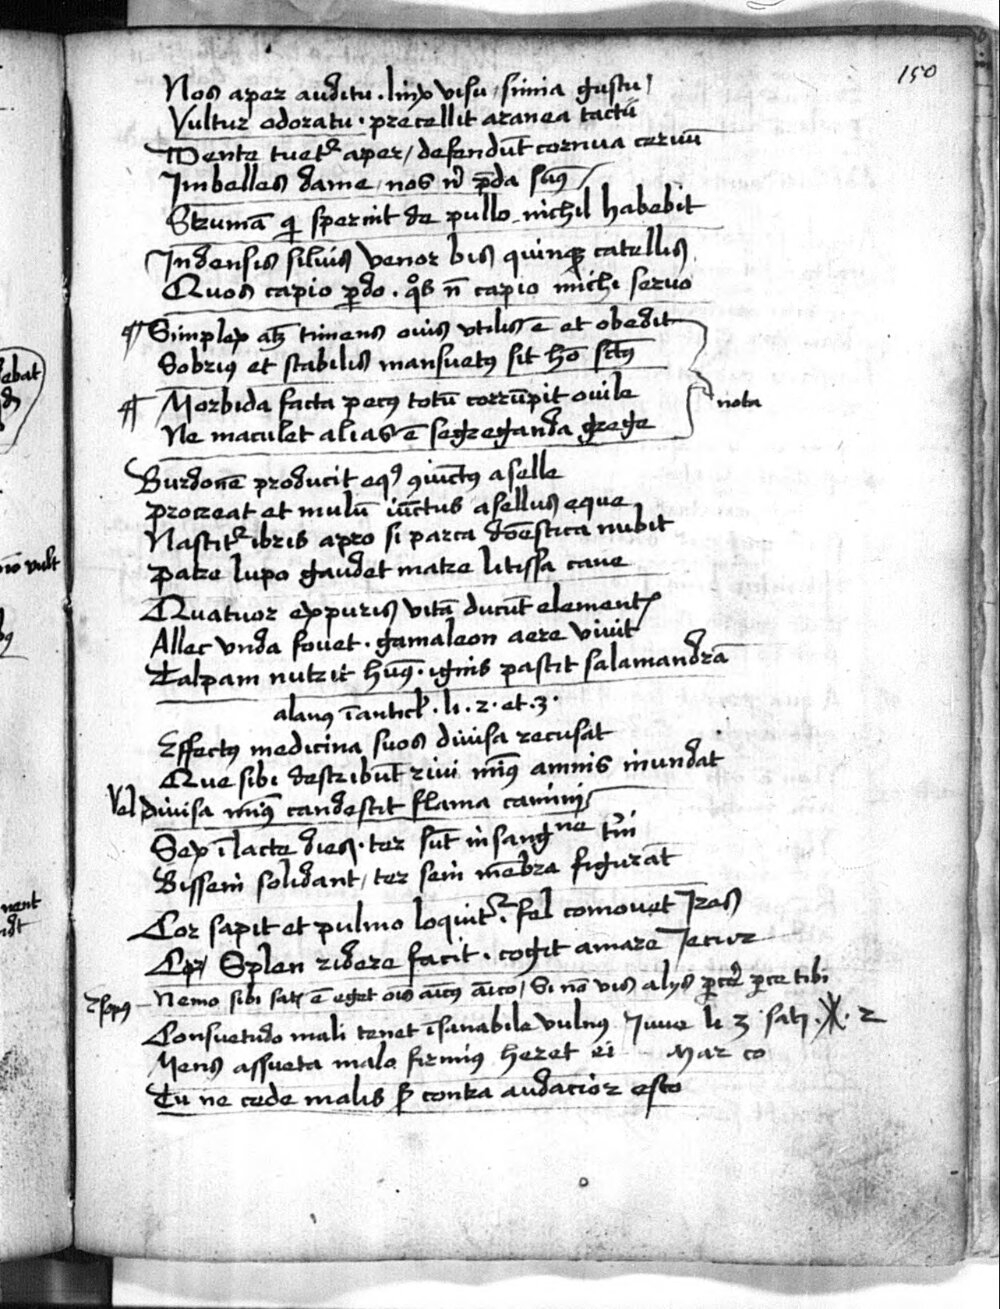 150
Nos aper auditu . linx visu / simia gustu /
Vultur odoratu . precellit aranea tactū
Dente tuet² aper / defendūt cornua ceruū
Imbelles dame / nos nͥ p̄da sum⁹
Strumā qͥ spernit de pullo nichil habebit
In densis siluis venor bis quinqꝫ catellis
Quos capio ꝑdo . qͦs n̄ capio michi seruo
¶ Simplex atqꝫ timens ouis vtilis ē et obedit
Sobri⁹ et stabilis mansuet⁹ sit hō sct̄⁹
¶ Morbida facta pec⁹ totū corrūpit ouile
nota
Ne maculet alias ē segreganda grege
Burdonē producit eq⁹ ꝯiūct⁹ aselle
procreat et mulū iūctus asellus eque
Nascit² ibris apro si parca domēstica nubit
patre lupo gaudet matre litissa cane
Quatuor ex puris vitā ducūt elementꝭ
Allec vnda fouet . gamaleon aere viuit
Talpam nutrit hum⁹ . ignis pascit salamandrā
alan⁹ ī anticl̄ . li . 2 . et . 3 .
Effect⁹ medicina suos diuisa recusat
Que sibi destribūt riui mī⁹ amnis inundat
Vel diuisa mī⁹ candescit flama camini
Sex ī lacte dies . ter sūt in sangⁿᵉ tͥni
Bisseni solidant / ter seni mēbra figurāt
Cor sapit et pulmo loquit² . fel comouet Iras
Splen ridere facit . cogit amare Iecur
Esop⁹ Nemo sibi satꝭ ē eget oīs amic⁹ amico / Si nō vis alijs ꝑcē ꝑce tibi
Consuetudo mali tenet īsanabile vuln⁹ Iuue li 3 satꝭ . 2
Mens assueta malo firmi⁹ heret ei Mar co
Tu ne cede malis sꝫ contra audacior esto
ebat
vult
nent